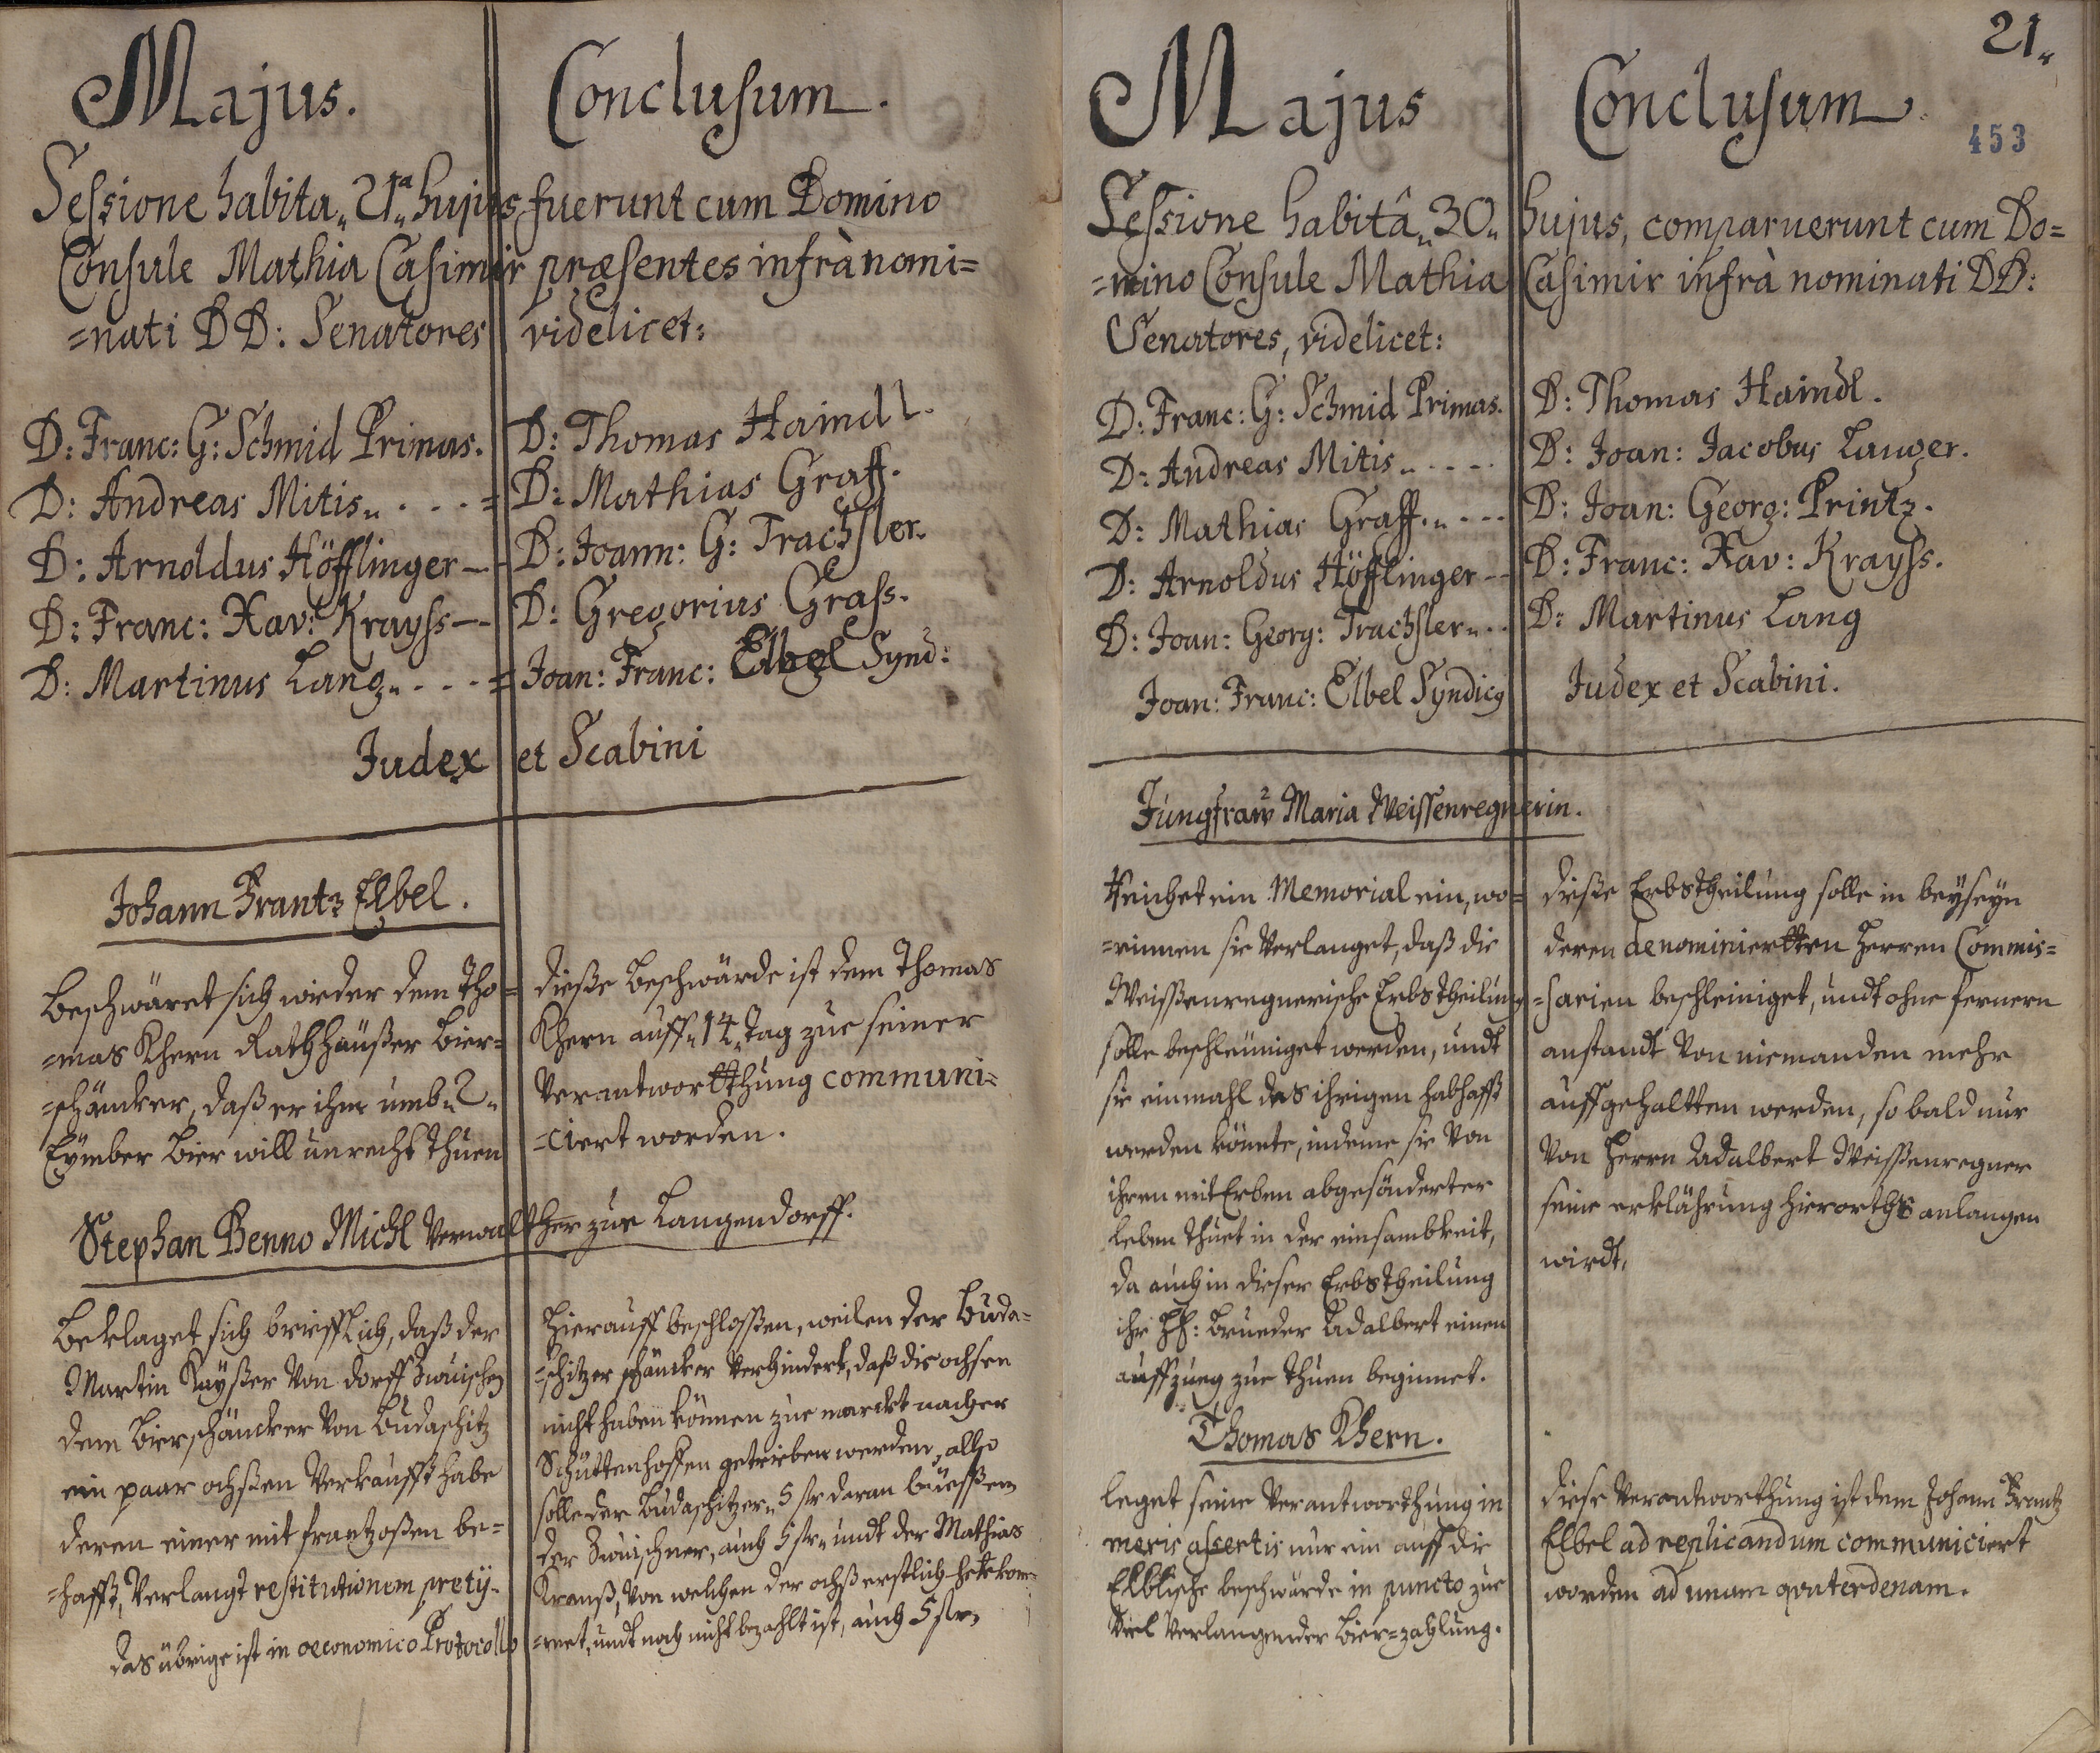 Majus.
Conclusum.
Sessione habita „21ª„ hujus fuerunt cum Domino
Consule Mathia Casimir præsentes infrà nomi=
=nati DD: Senatores videlicet:
D: Franc: G: Schmid Primas.
D: Thomas Haindl.
D: Andreas Mitis„ . . . =
D: Mathias Graff.
D: Arnoldus Höfflinger —
D: Joann: G: Trachsler.
D: Franc: Xav: Krayss —
D: Gregorius Grass.
D: Martinus Lang„ . . . =
Joan: Franc: Elbel Synd:
Judex et Scabini
Johann Frantz Elbel.
Beschwäret sich wieder dem Tho=
=mas Khern Rathhäußer Bier=
=schäncker, daß er ihm umb „2„
Eÿmber Bier will unrecht thuen
dieße Beschwärde ist dem Thomas
Khern auff „14„ Tag zue seiner
Verantwortthung communi=
=ciert worden.
Stephan Benno Michl Verwalther zue Langendorff.
Beklaget sich brieffLich, daß der
Martin Kaÿßer Von dorff Zwuischen
dem Bierschäncker Von Budaschitz
ein paar ochßen Verkaufft habe
deren einer mit frantzoßen be=
=hafft, Verlangt restitutionem pretÿ.
das übrige ist in oeconomico Protocollo
Hierauff beschlossen, weilen der Buda=
=schitzer schäncker Verhindert, daß die ochsen
nicht haben können zue marckt nacher
Schüttenhoffen getrieben werden, allso
solle der Budaschitzer „5 str daran büessen
der Zwuischner, auch 5 str„ undt der Mathias
Krauß, Von welchen der ochß erstlich hekom=
=met, undt noch nicht bezahlt ist, auch 5 str„
21„
453
Majus
Conclusum
Sessione habitâ „30„ hujus, comparuerunt cum Do=
=mino Consule Mathia Casimir infrà nominati DD:
Senatores, videlicet:
D: Franc: G: Schmid Primas.
D: Thomas Haindl.
D: Andreas Mitis„ . . . .
D: Joan: Jacobus Langer.
D: Mathias Graff.„ . . .
D: Joan: Georg: Printz.
D: Arnoldus Höfflinger —
D: Franc: Xav: Krayss.
D: Joan: Georg: Trachsler„ . .
D: Martinus Lang
Joan: Franc: Elbel Syndicg
Judex et Scabini.
Jungfraw Maria Weissenregnerin.
Reichet ein Memorial ein, wo=
=rinnen sie Verlanget, daß die
Weissenregnerische Erbstheilung
solle beschleuniget werden, undt
sie einmahl des ihrigen habhafft
werden könnte, indeme sie Von
ihren mit Erben abgesönderter
leben thuet in der einsambkeit,
da auch in dieser Erbstheilung
ihr HH: Brueder Adalbert einen
auffzueg zue thuen beginnet.
dieße Erbstheilung solle in beÿseÿn
deren denominiertten Herren Commis=
=sarien beschleiniget, undt ohne fernern
anstandt Von niemanden mehr
auffgehaltten werden, so bald nur
Von Herrn Adalbert Weissenregner
seine erklährung hierorths anlangen
wirdt.
Thomas Khern.
leget seine Verantworthung in
meris assertis nur ein auff die
Elblische beschwärde in puncto zue
Viel Verlangender Bier=zahlung.
diese Verantworthung ist dem Johann Frantz
Elbel ad replicandum communiciert
worden ad unam quaterdenam.